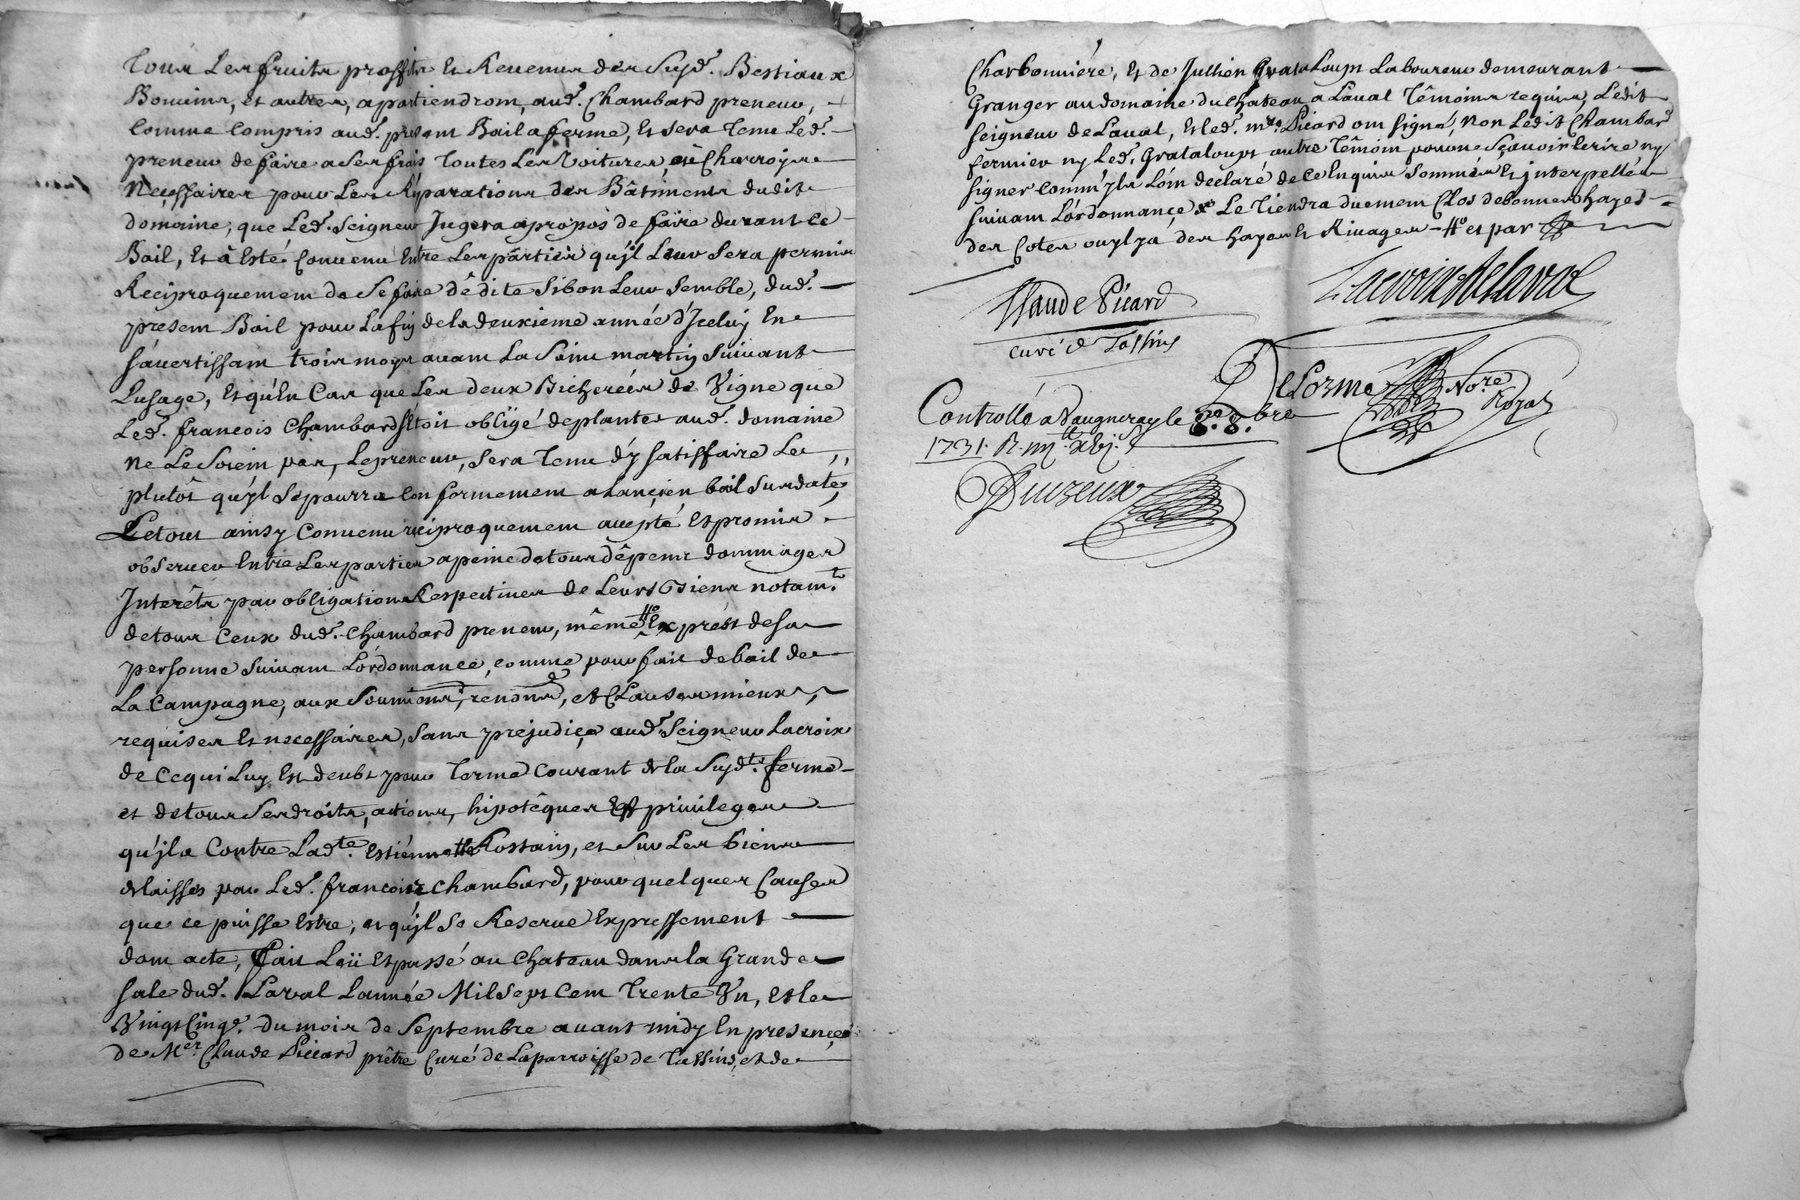 Tous Les fruits proffits Et Revenus des Susd. Bestiaux
Bouuins, et autres, apartiendront, aud. Chambard preneur,
Comme Compris aud. present Bail a ferme, Et sera Tenu Led.
preneur de faire a Ses frais Toutes Les Voitures, et Charroys
Necessaires pour Les Réparations des Bâtiments dudit
domaine, que Led. Seigneur Jugera apropos de faire durant Le
Bail, Et à Esté Convenu Entre Les parties qu'jl Leur Sera permis
Reciproquement de Se faire dédite Si bon Leur Semble, dud.
present Bail pour La fin de la deuxieme année d'Jceluy En
S'avertissant trois moys avant La Saint martin Suivant
L'usage, Et qu'En Cas que Les deux Bicherées de Vigne que
Led. francois Chambard Etoit obligé de planter aud. domaine
Ne Le Soient pas, Le preneur, Sera Tenu d'y Satisfaire Le
plutôt qu'jl Se pourra Conformement a L'ancien bail Susdaté,
Le tout ainsy Convenu reciproquement accepté Et promis
observer Entre Les parties a peine de tous dépens dommages
Interêts par obligations Respectives de Leurs Biens notamt.
de tous Ceux dud. Chambard preneur, même # Exprès de sa
personne Suivant L'ordonnance, comme pour fait de bail de
La Campagne, aux Soumions, renons, et Clauses mieux
requises Et necessaires, Sans prejudice aud. Seigneur Lacroix
de Ce qui Luy Est deubt pour Terme Courant de la Susdte. ferme
et de tous Ses droits, actions, hipotêques Et privileges
qu'jl a Contre Ladte. Estiennette Rostain, et Sur Les biens
delaissés par Led. francois Chambard, pour quelques Causes
que ce puisse Estre, et qu'jl Se Reserve Expressement
dont acte, fait Leü Et passé au Chateau dans la Grande
Sale dud. Laval L'année Mil Sept Cent Trente Vn, Et le
Vingt Cinqe. du mois de Septembre avant midy En presence
de Mer. Claude Piccard prêtre Curé de La parroisse de Tassins, et de
Charbonniére, Et de Jullien Grataloupt Laboureur demeurant
Granger au domaine du Chateau a Laval Têmoins requis, Ledit
Seigneur de Laval, Et led. mre. Picard ont Signé, Non Ledit Chambard
fermier ny Led. Grataloupt autre Têmoin pour ne Sçavoir Ecrire ny
Signer Comm'jls L'ont declaré de Ce Enquis Sommés Et jnterpellés
Suivant L'ordonnance, & Le Tiendra duement Clos de bonnes hayes
des Cotes ou yl ya des hayes Et Rivages # et par
Claude Picard
curé de Tassins
Lacroix de laval
DeLorme Nore
Royal
Controllé a Vaugneray le 8e. 8.bre
1731.
Duizeux